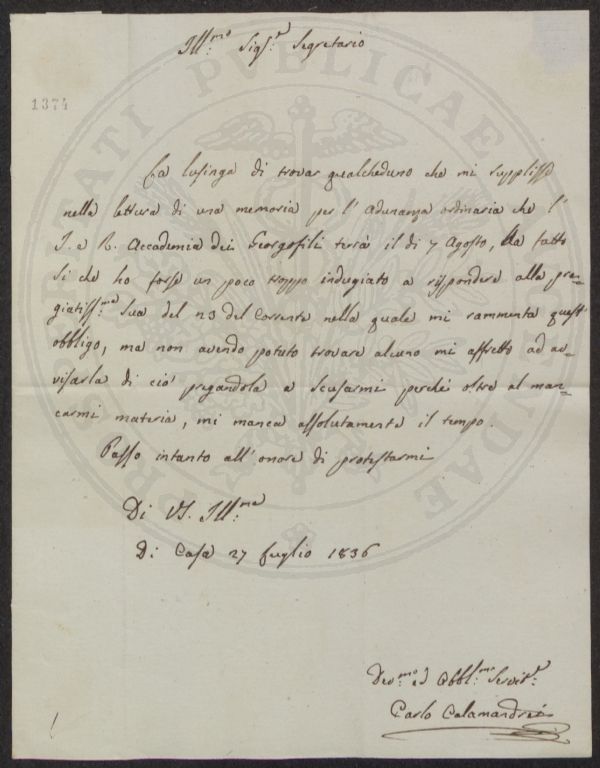 Ill:mo Sigr:e Segretario
1374
La lusinga di trovar qualcheduno che mi supplisse
nella lettura di una memoria per l' Adunanza ordinaria che l'
I. e R. Accademia dei Georgofili terrà il di 7 Agosto, ha fatto
si che ho forse un poco troppo indugiato a rispondere alla pre=
giatiss:ma Sua del 23 del Corrente nella quale mi rammenta quest'
obbligo, ma non avendo potuto trovare alcuno mi affretto ad av=
visarla di ciò pregandola a scusarmi perché oltre al man=
carmi materia, mi manca assolutamente il tempo.
Passo intanto all' onore di protestarmi
Di VS. Ill:ma
Di Casa 27 Luglio 1836
Dev:mo ed Obbl:mo Servit:e
Carlo Calamandrei
PROSPERITATI PVBLICAE AVGENDAE